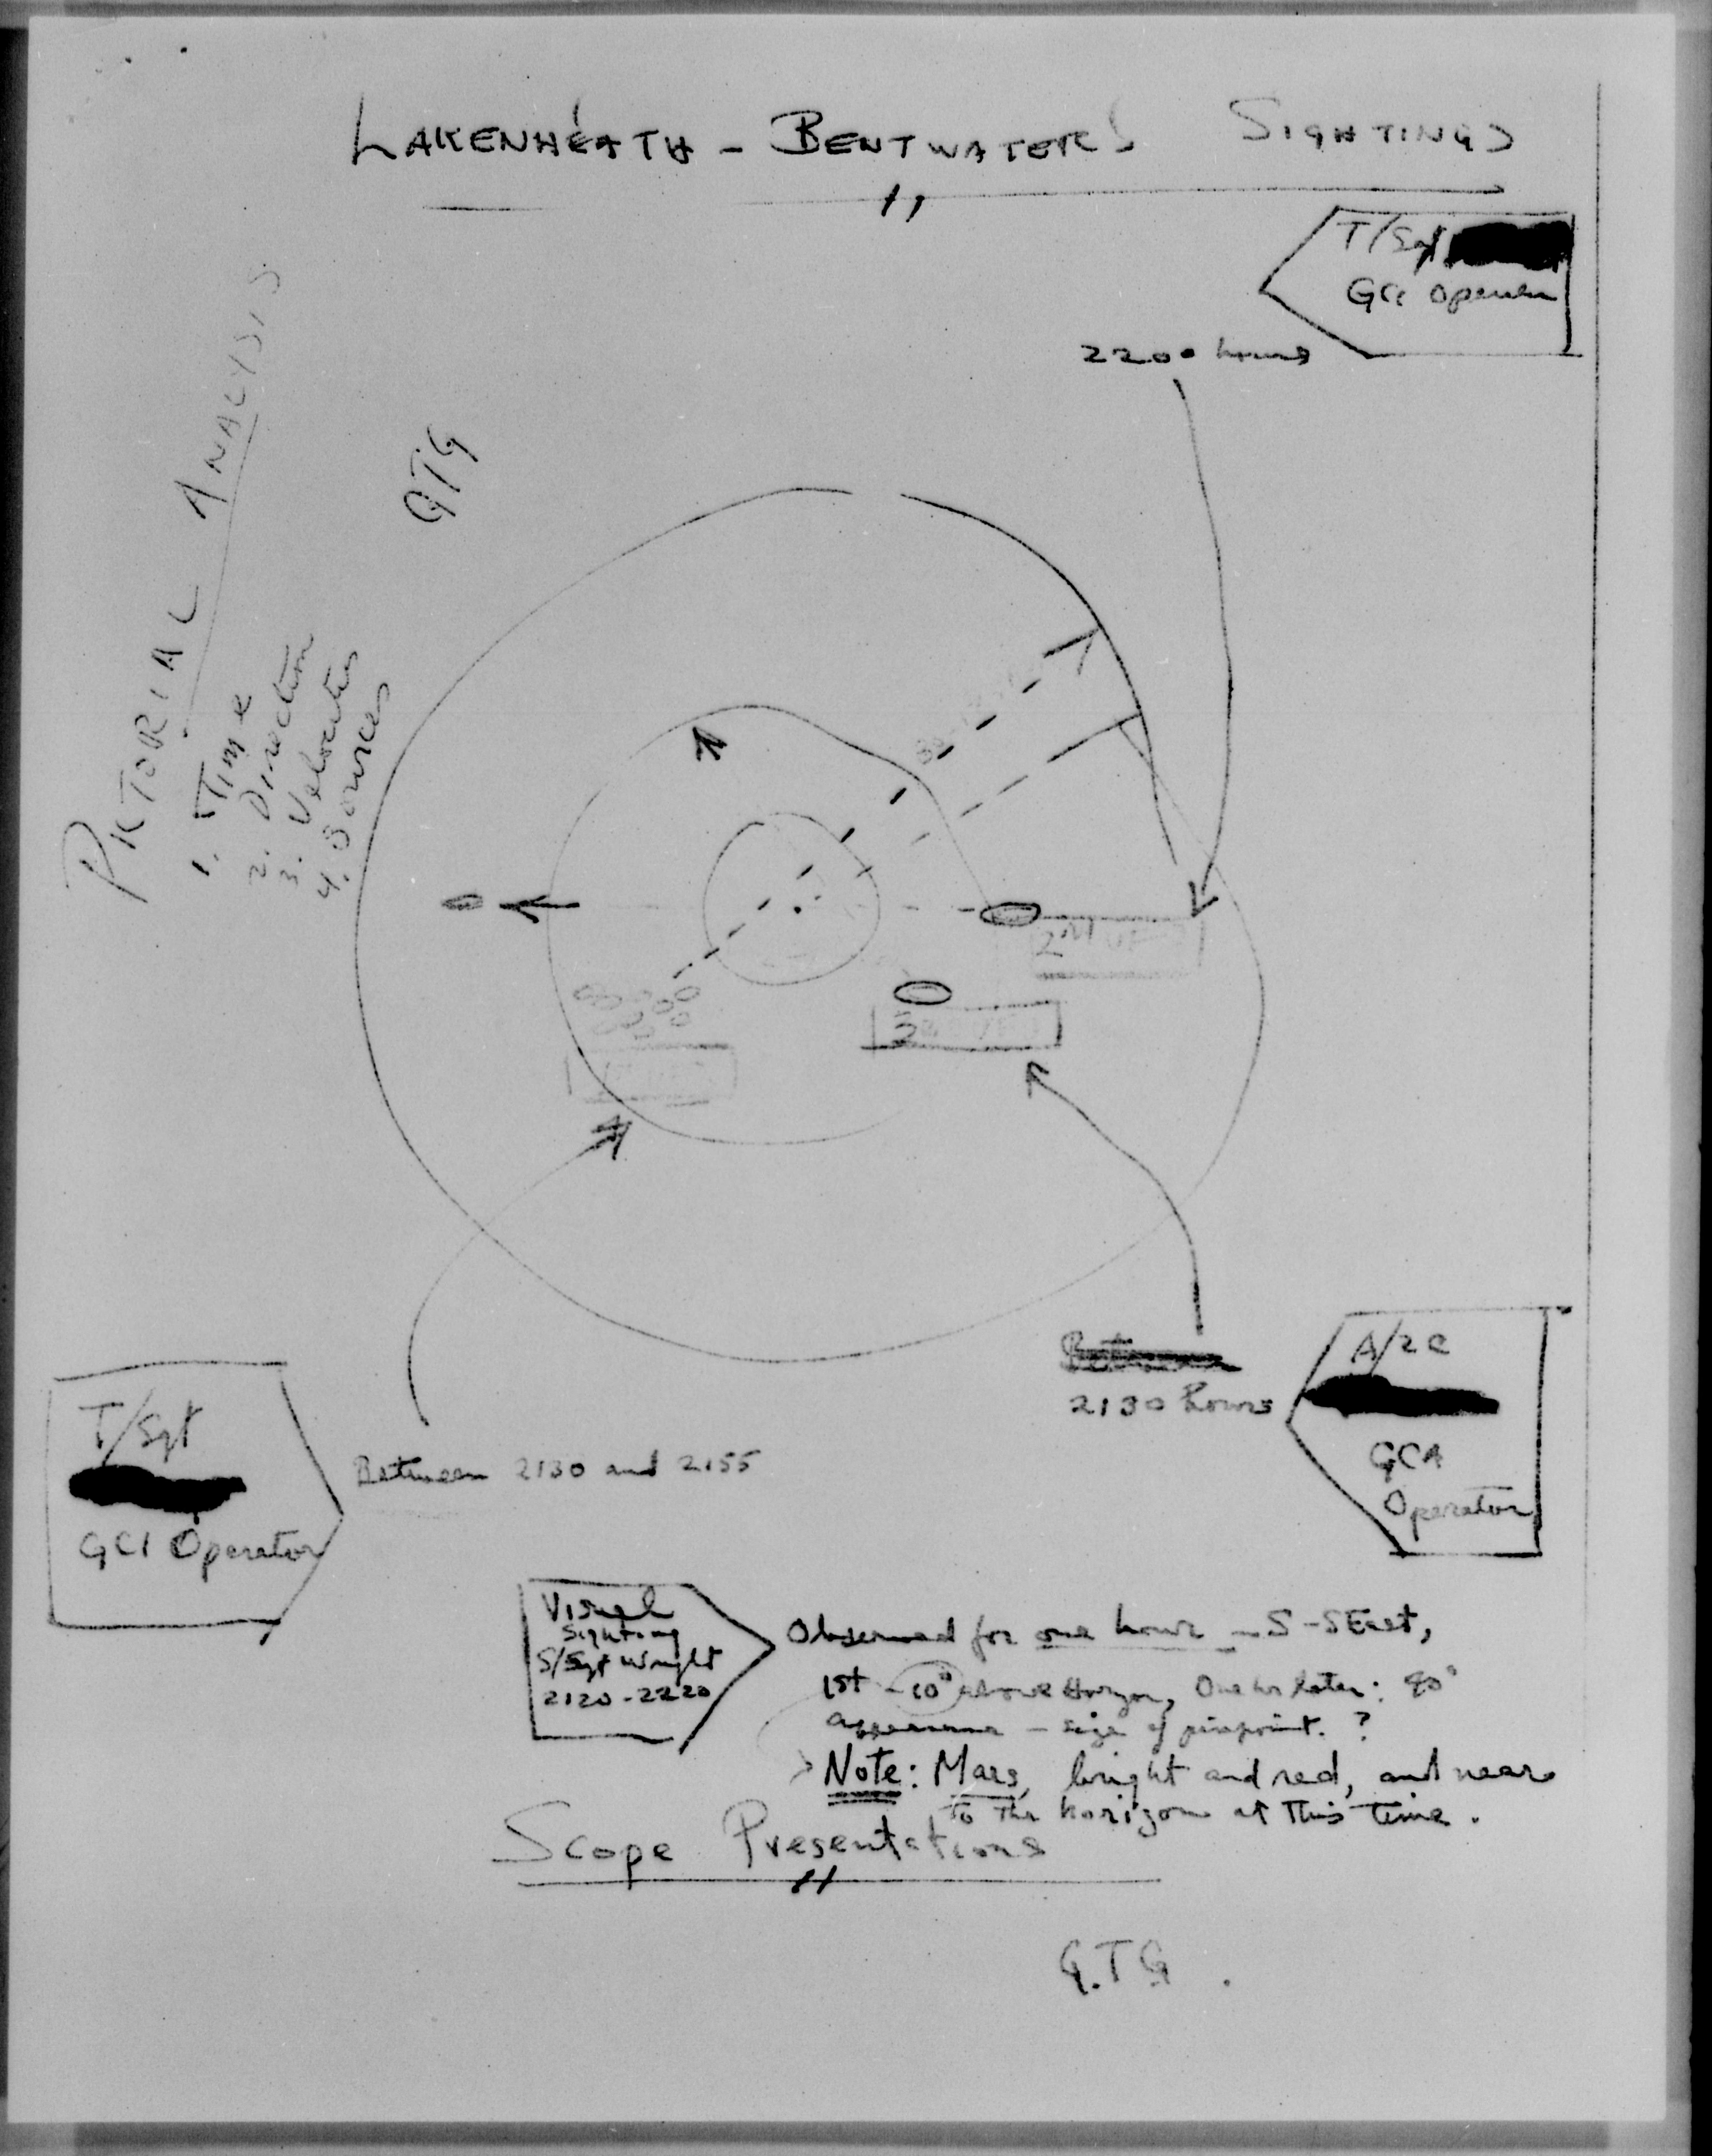 LAKENHEATH - BENTWATERS SIGHTINGS
T/Sgt
GCA Operator
2200 hours
PICTORIAL ANALYSIS
1. Time
2. Direction
3. Velocities
4. Sources
GTG
2130 hours
A/2C
GCA
Operator
T/Sgt
GCI Operator
Between 2130 and 2155
Visual
Sighting
S/Sgt Wright
2120-2220
Observed for one hour - S-SEast,
1st - 10° above Horizon, One hr later: 40°
appearance - size of pinpoint. ?
Note: Mars, bright and red, and near
to the horizon at this time.
Scope Presentations
G.T.G.